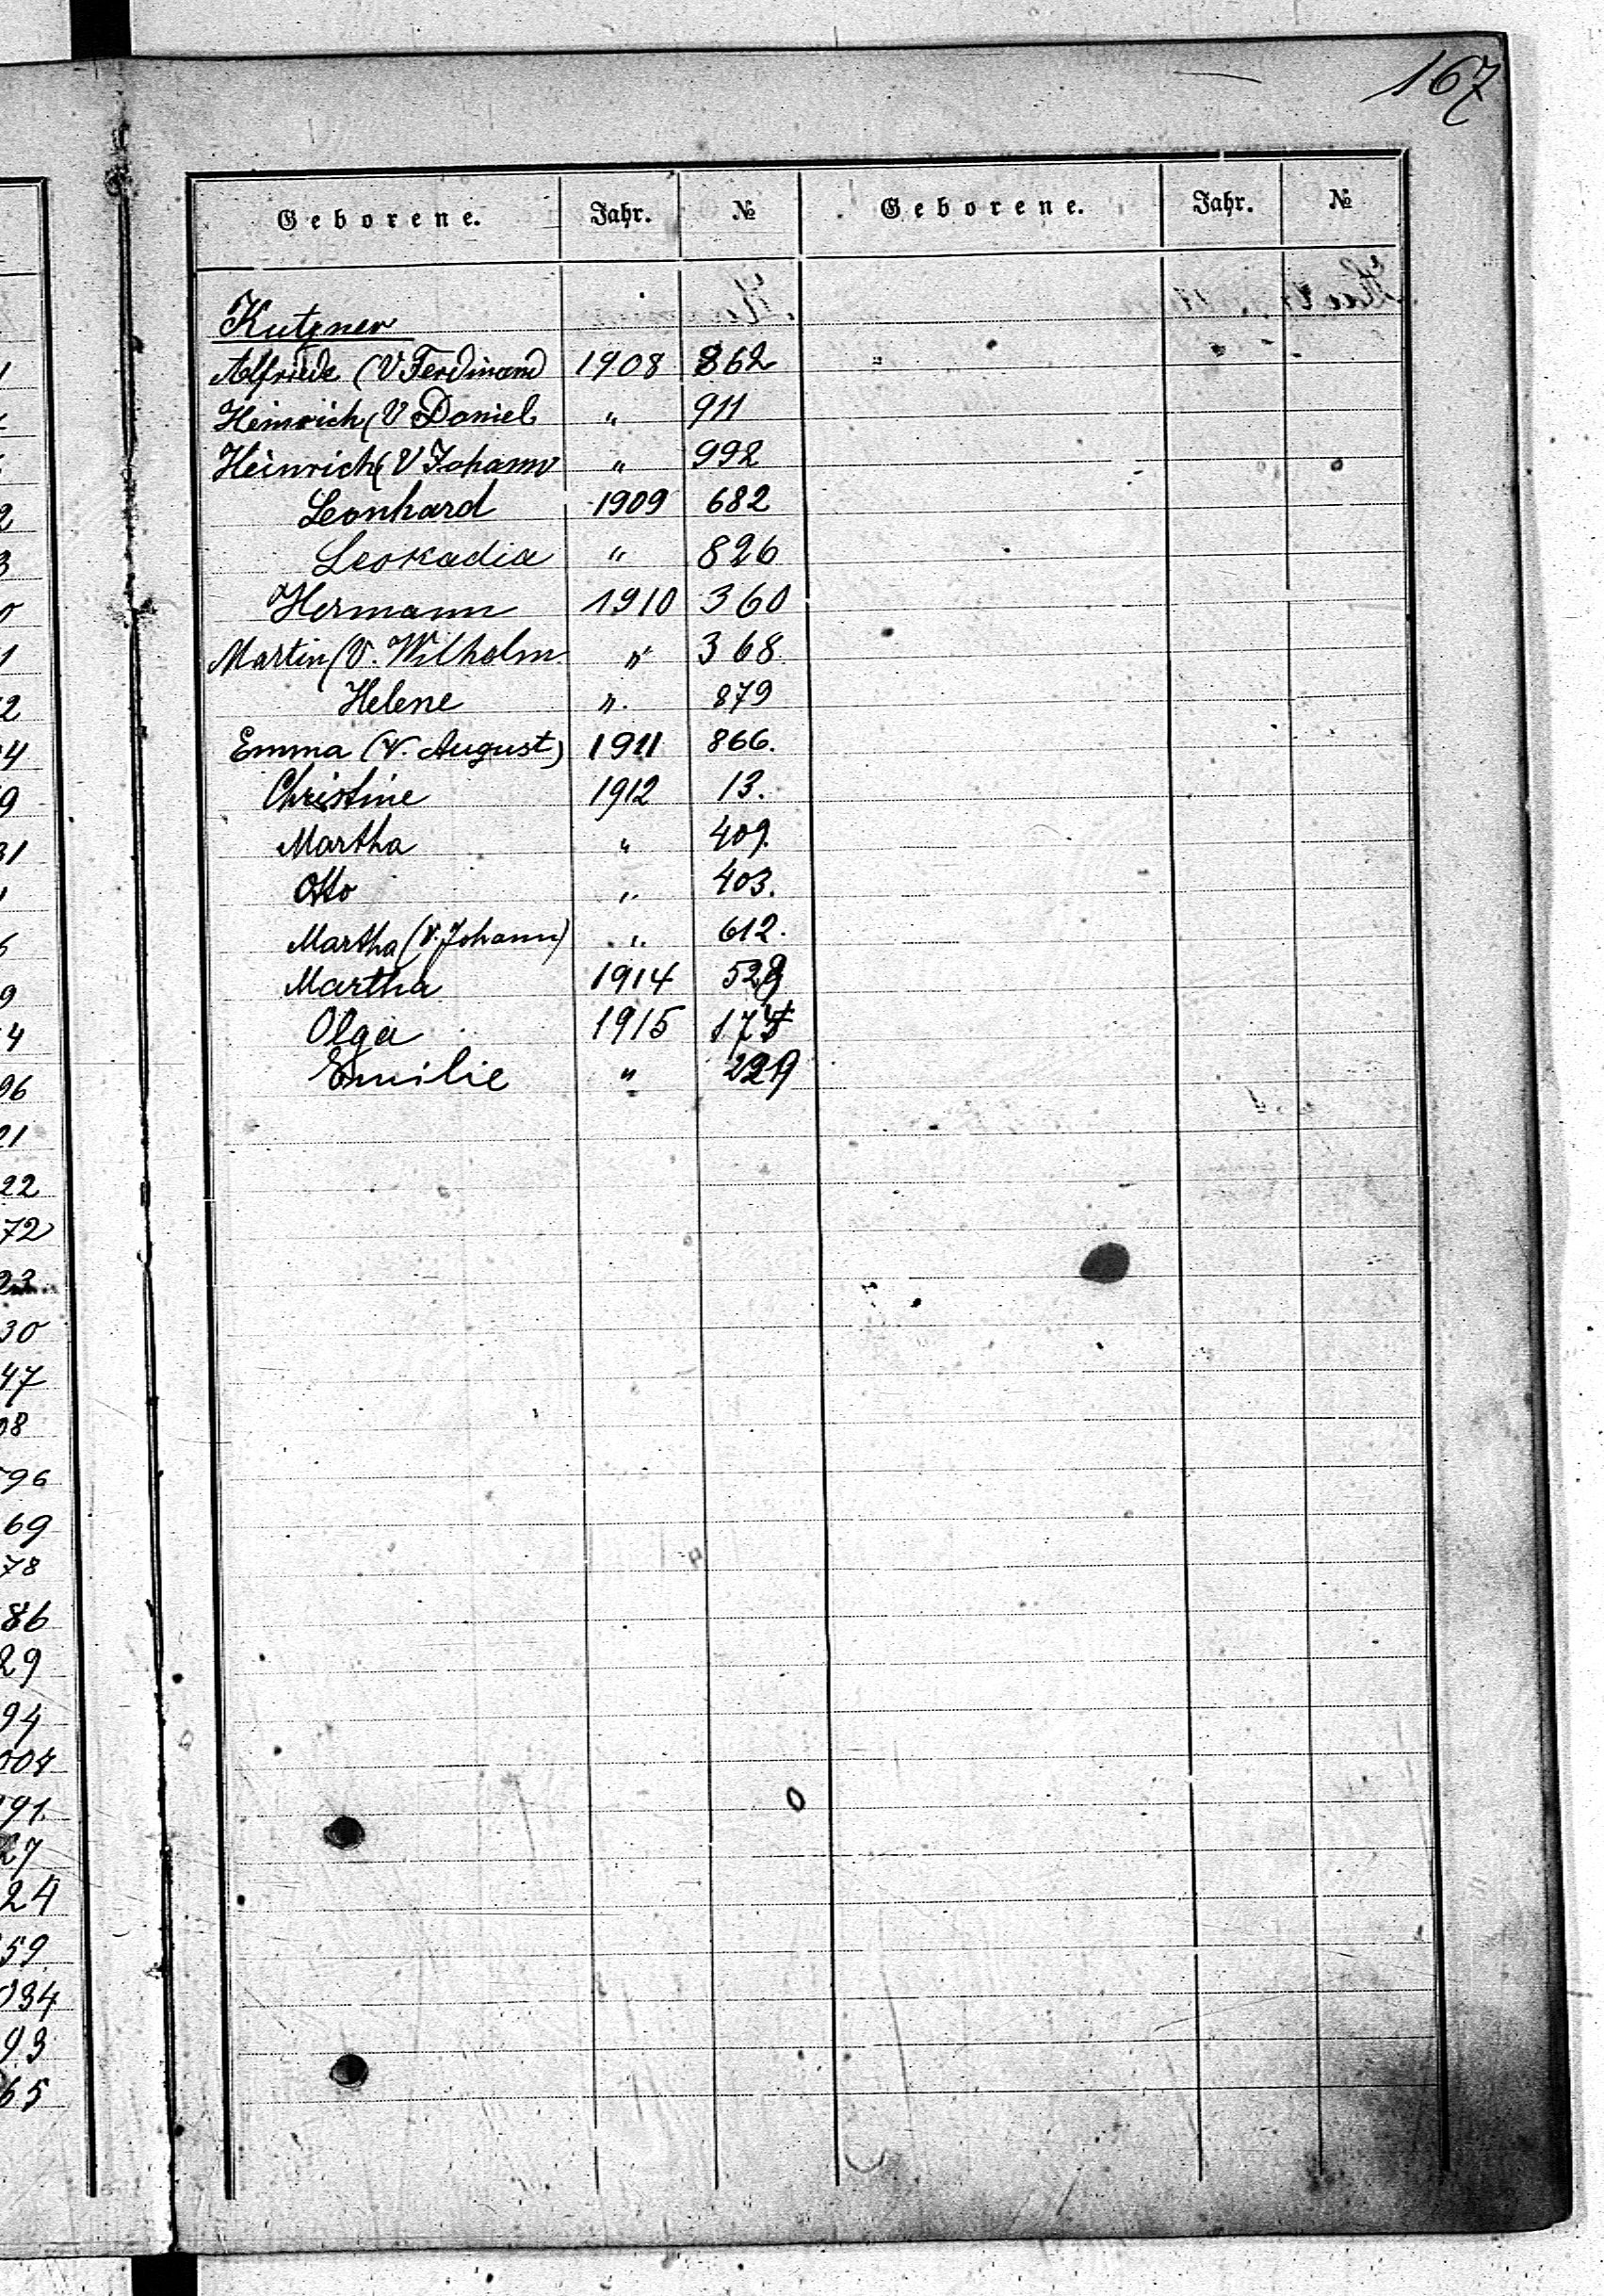 167
Geborene. Jahr. № Geborene. Jahr. №
Kutzner
Alfriede (V Ferdinand 1908 862
Heinrich (V Daniel " 911
Heinrich (V Johann " 992
Leonhard 1909 682
Leokadia " 826
Hermann 1910 360
Martin (V. Wilhelm " 368
Helene " 879
Emma (V. August) 1911 866.
Christine 1912 13.
Martha " 409.
Otto " 403.
Martha (V. Johann) " 612.
Martha 1914
Olga 1915
Emilie "
2
3
0
1
2
4
9
31
6
9
4
96
21
22
72
23
30
47
08
96
69
78
86
29
94
004
91.
27
24
59
034
93
65